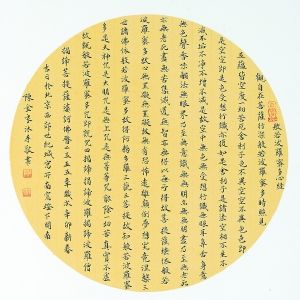 般若波羅蜜多心經
觀自在菩薩行深般若波羅蜜多時照見
五蘊皆空度一切苦厄舍利子色不異空空不異色色即
是空空即是色受想行識亦復如是舍利子是諸法空相不生不
滅不垢不淨不增不減是故空中無色無受想行識無眼耳鼻舌身意
無色聲香味觸法無眼界乃至無意識界無無明亦無無明盡乃至無老死
亦無老死盡無苦集滅道無智亦無得以無所得故菩提薩埵依般若
波羅蜜多故心無罣礙無罣礙故無有恐怖遠離顛倒夢想究竟涅槃三
世諸佛依般若波羅蜜多故得阿耨多羅三藐三菩提故知般若波羅蜜
多是大神咒是大明咒是無上咒是無等等咒能除一切苦真實不虛
故說般若波羅蜜多咒即說咒曰揭諦揭諦波羅揭諦波羅僧
揭諦菩提薩婆訶佛曆二五五五年歲次辛卯新春
吉日於北京西郊
陳金沐手敬書